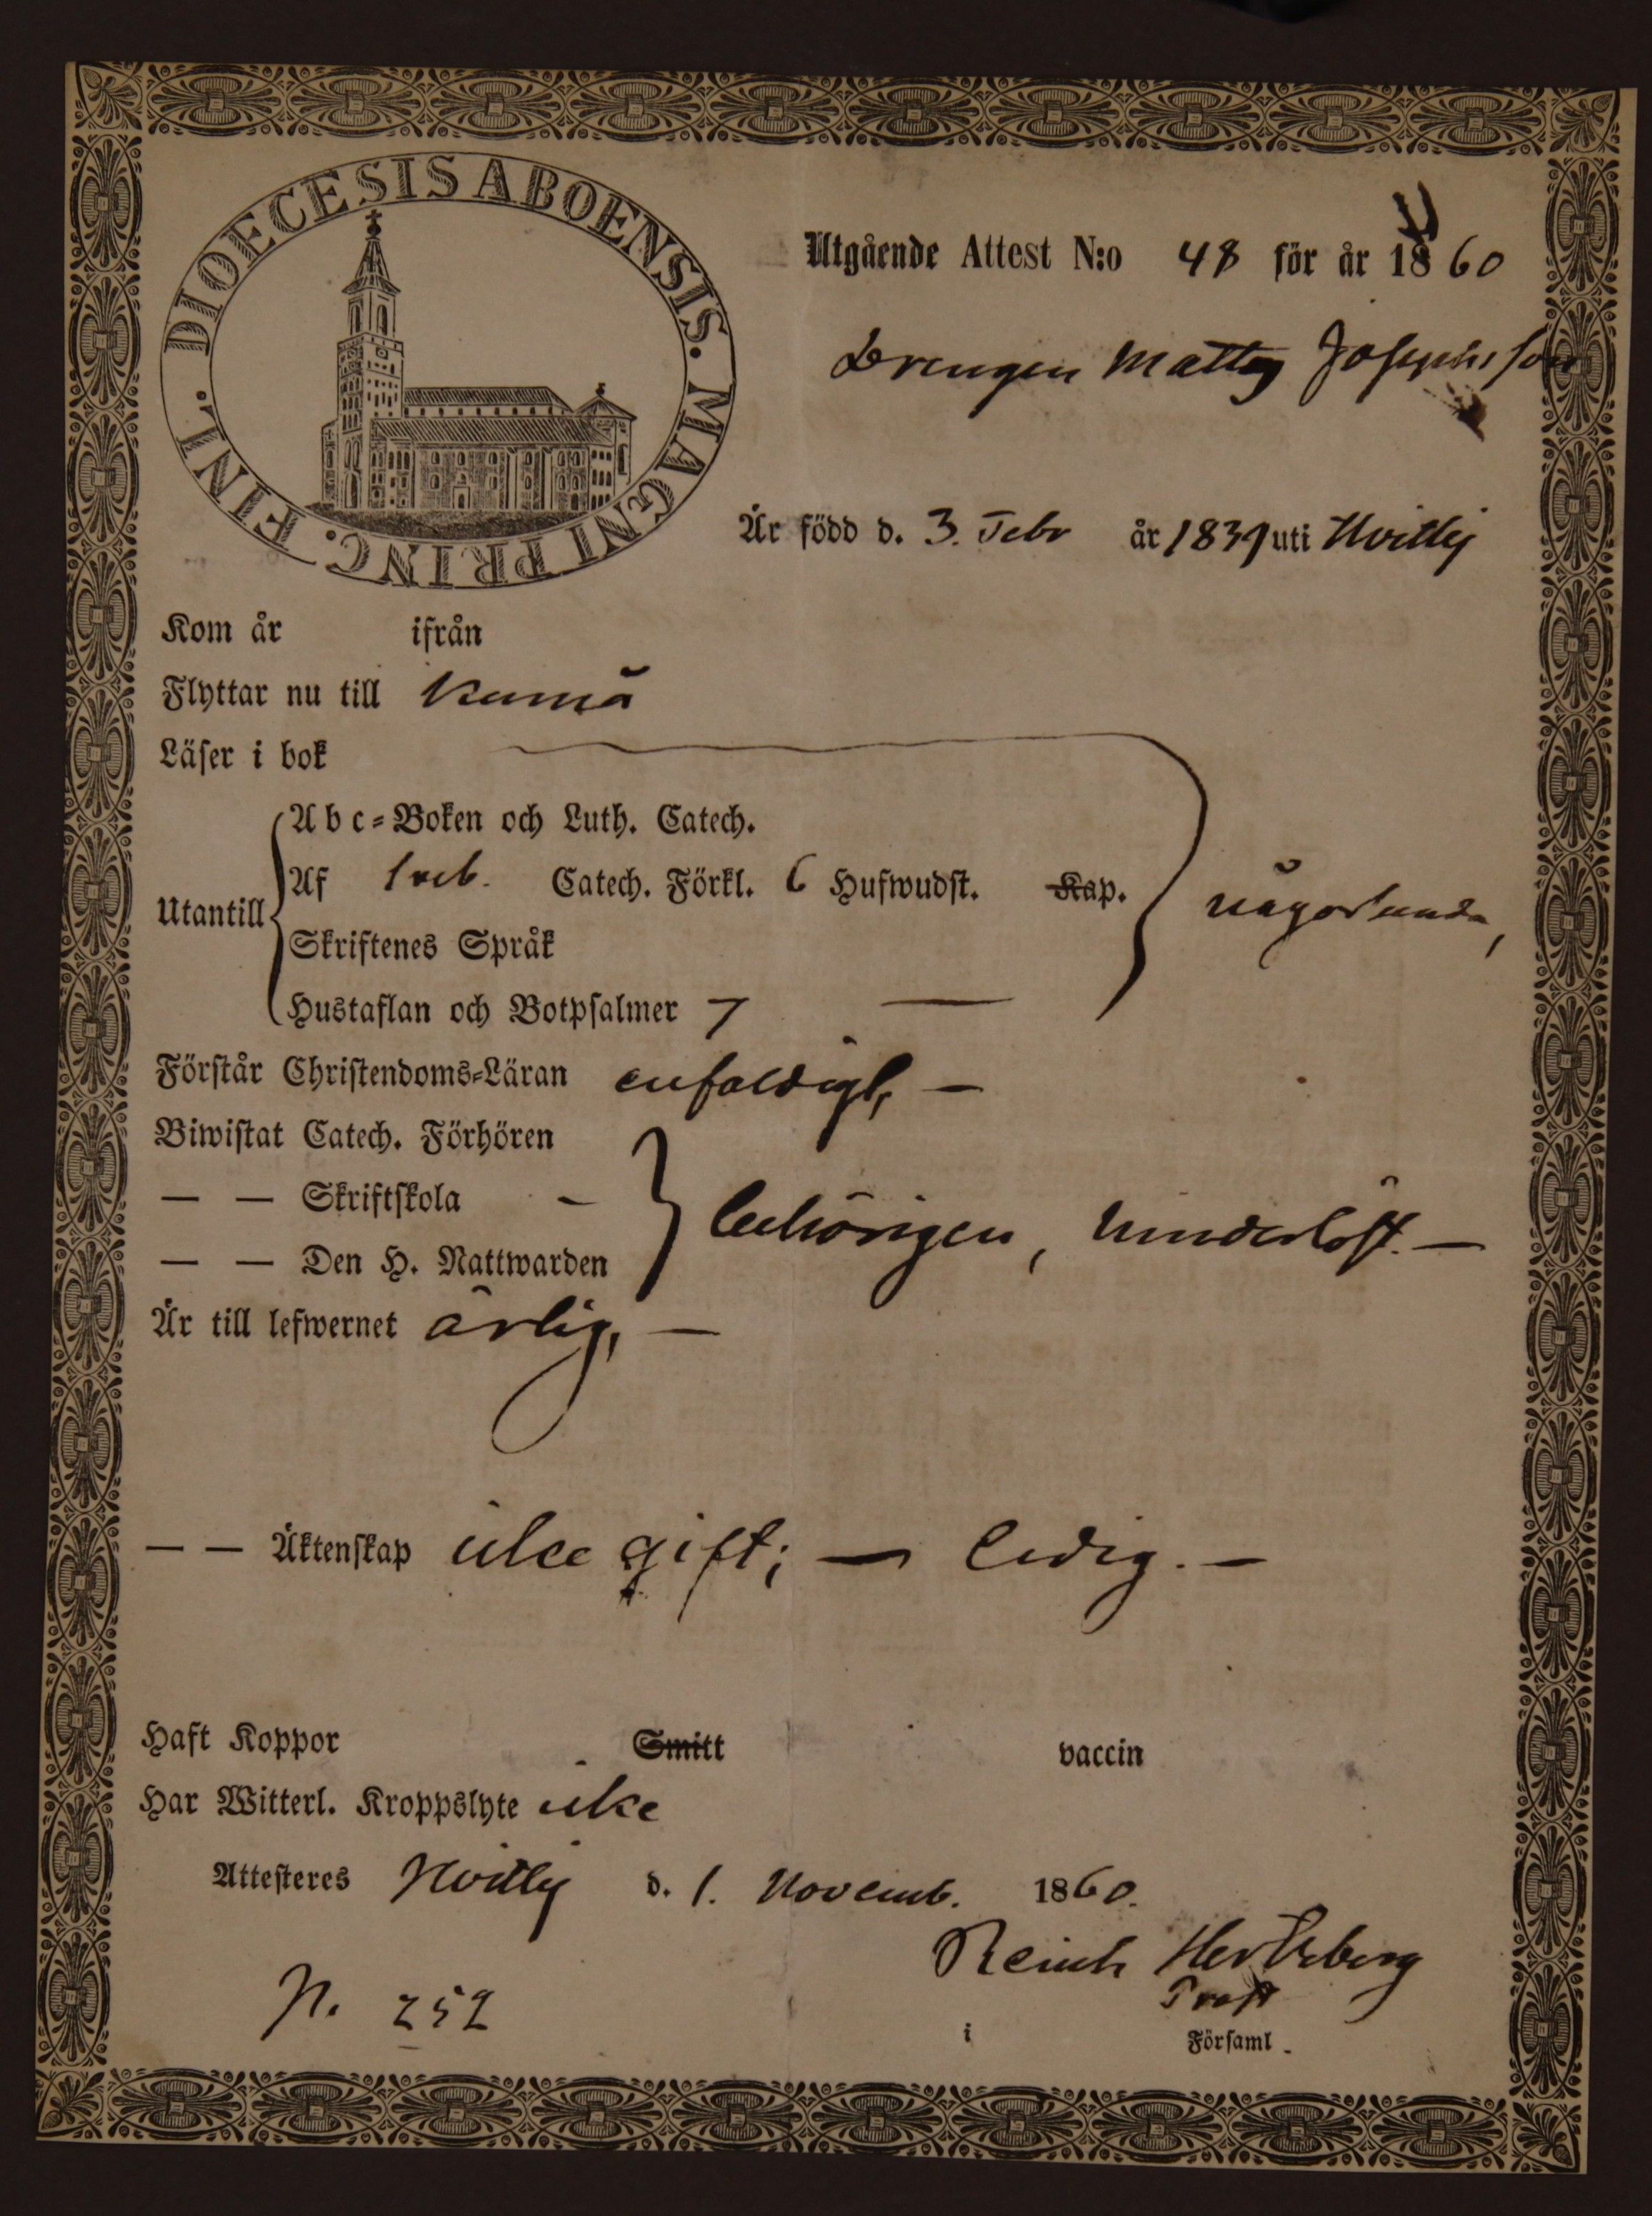 DIOECESIS ABOENSIS. MAGNI PRINC. FINL.
Utgående Attest N:o 48 för år 1860
Drengen Matts Josephsson
Är född d. 3. Febr år 1839 uti Hvittis
Kom år ifrån
Flyttar nu till Kumå
Läser i bok
Abc-Boken och Luth. Catech.
Utantill Af Sveb. Catech. Förkl. 6 Hufwudst. Kap. någorlunda,
Skriftenes Språk
Hustaflan och Botpsalmer 7 —
Förstår Christendoms-Läran enfaldigt, —
Biwistat Catech. Förhören
— — Skriftskola - behörigen, hinderlöst. —
— — Den H. Nattwarden
Är till lefwernet ärlig, —
— — Äktenskap icke gift; — ledig. —
Haft Koppor Smitt vaccin
Har Witterl. Kroppslyte icke
Attesteres Hvittis d. 1. Novemb. 1860.
Reinh Hertzberg
Prost
N. 252
i Församl.